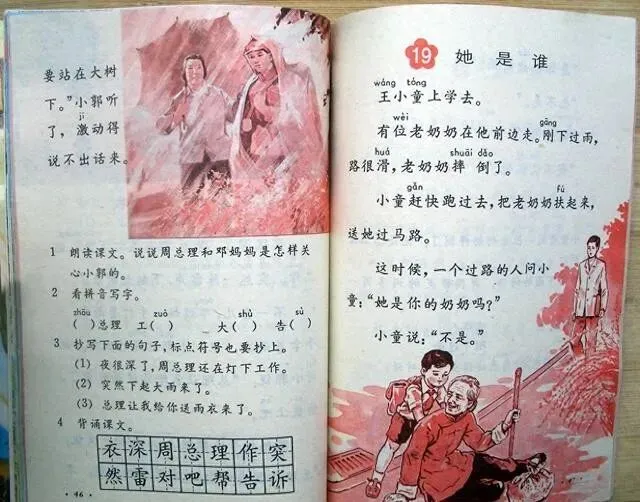 要站在大树
下。”小郭听
jī
了，激动得
说不出话来。
1 朗读课文。说说周总理和邓妈妈是怎样关
心小郭的。
2 看拼音写字。
zhōu zuò shù sù
（ ）总理 工（ ） 大（ ） 告（ ）
3 抄写下面的句子，标点符号也要抄上。
（1）夜很深了，周总理还在灯下工作。
（2）突然下起大雨来了。
（3）总理让我给你送雨衣来了。
4 背诵课文。
衣深周总理作突
然雷对吧帮告诉
· 46 ·
19 她是谁
wáng tóng
王小童上学去。
wèi gāng
有位老奶奶在他前边走。刚下过雨，
huá shuāi dǎo
路很滑，老奶奶摔倒了。
gǎn fú
小童赶快跑过去，把老奶奶扶起来，
送她过马路。
这时候，一个过路的人问小
童：“她是你的奶奶吗？”
小童说：“不是。”